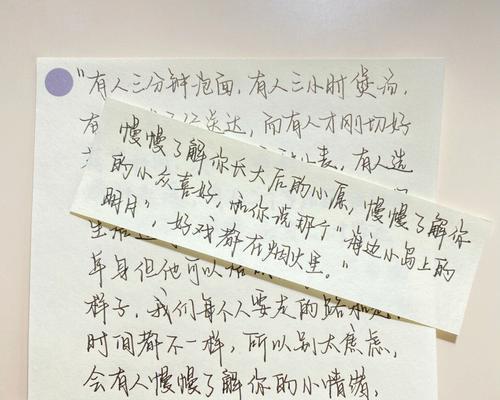 "有人三分钟泡面，有人三小时煲汤，
有
而有人才刚切好
有人选
慢慢了解你长大后的小屋，慢慢了解你
的小众喜好，和你说那个"海边小岛上的
明月"，好戏都在烟火里。"
单身但他可以
样子，我们每个人要走的路和
时间都不一样，所以别太焦虑，
会有人慢慢了解你的小情绪，